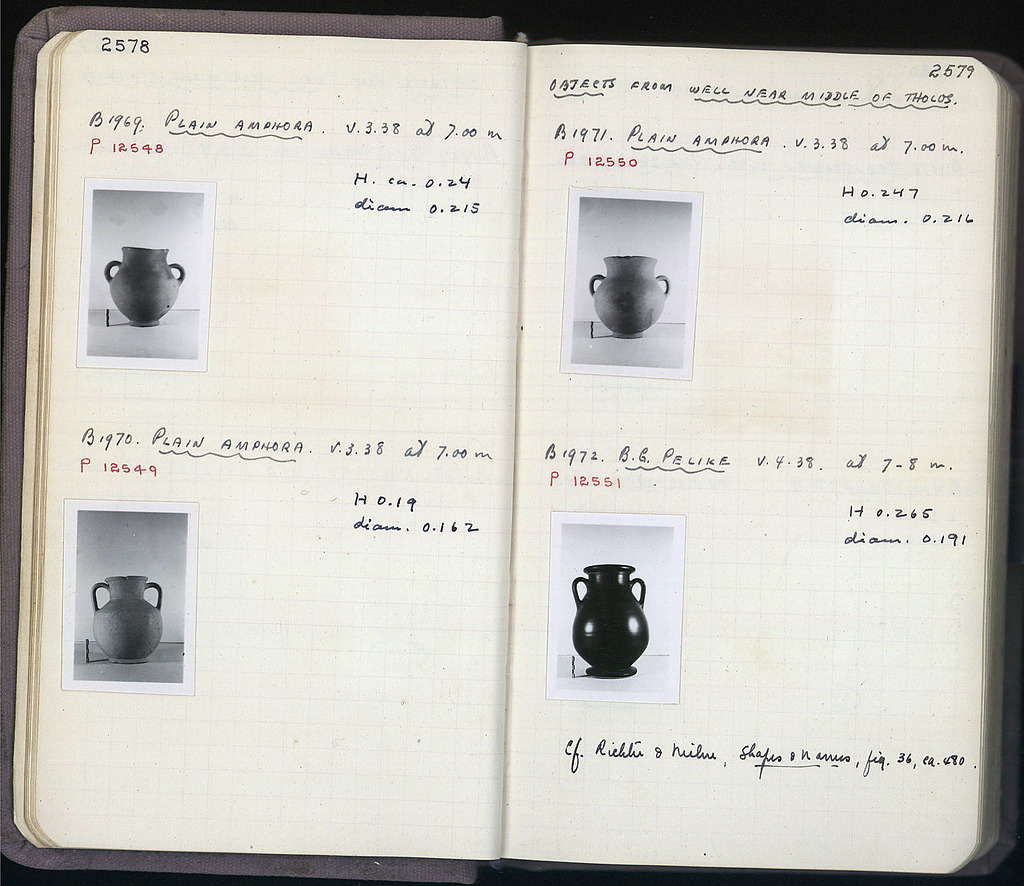 2578
B1969. PLAIN AMPHORA. V.3.38 at 7.00 m
P 12548
H. ca. 0.24
diam 0.215
B1970. PLAIN AMPHORA. V.3.38 at 7.00 m
P 12549
H 0.19
diam. 0.162
2579
OBJECTS FROM WELL NEAR MIDDLE OF THOLOS.
B1971. PLAIN AMPHORA. V.3.38 at 7.00 m.
P 12550
H 0.247
diam. 0.216
B1972. B.G. PELIKE V.4.38. at 7-8 m.
P 12551
H 0.265
diam. 0.191
Cf. Richter & Milne, Shapes & Names, fig. 36, ca. 480.